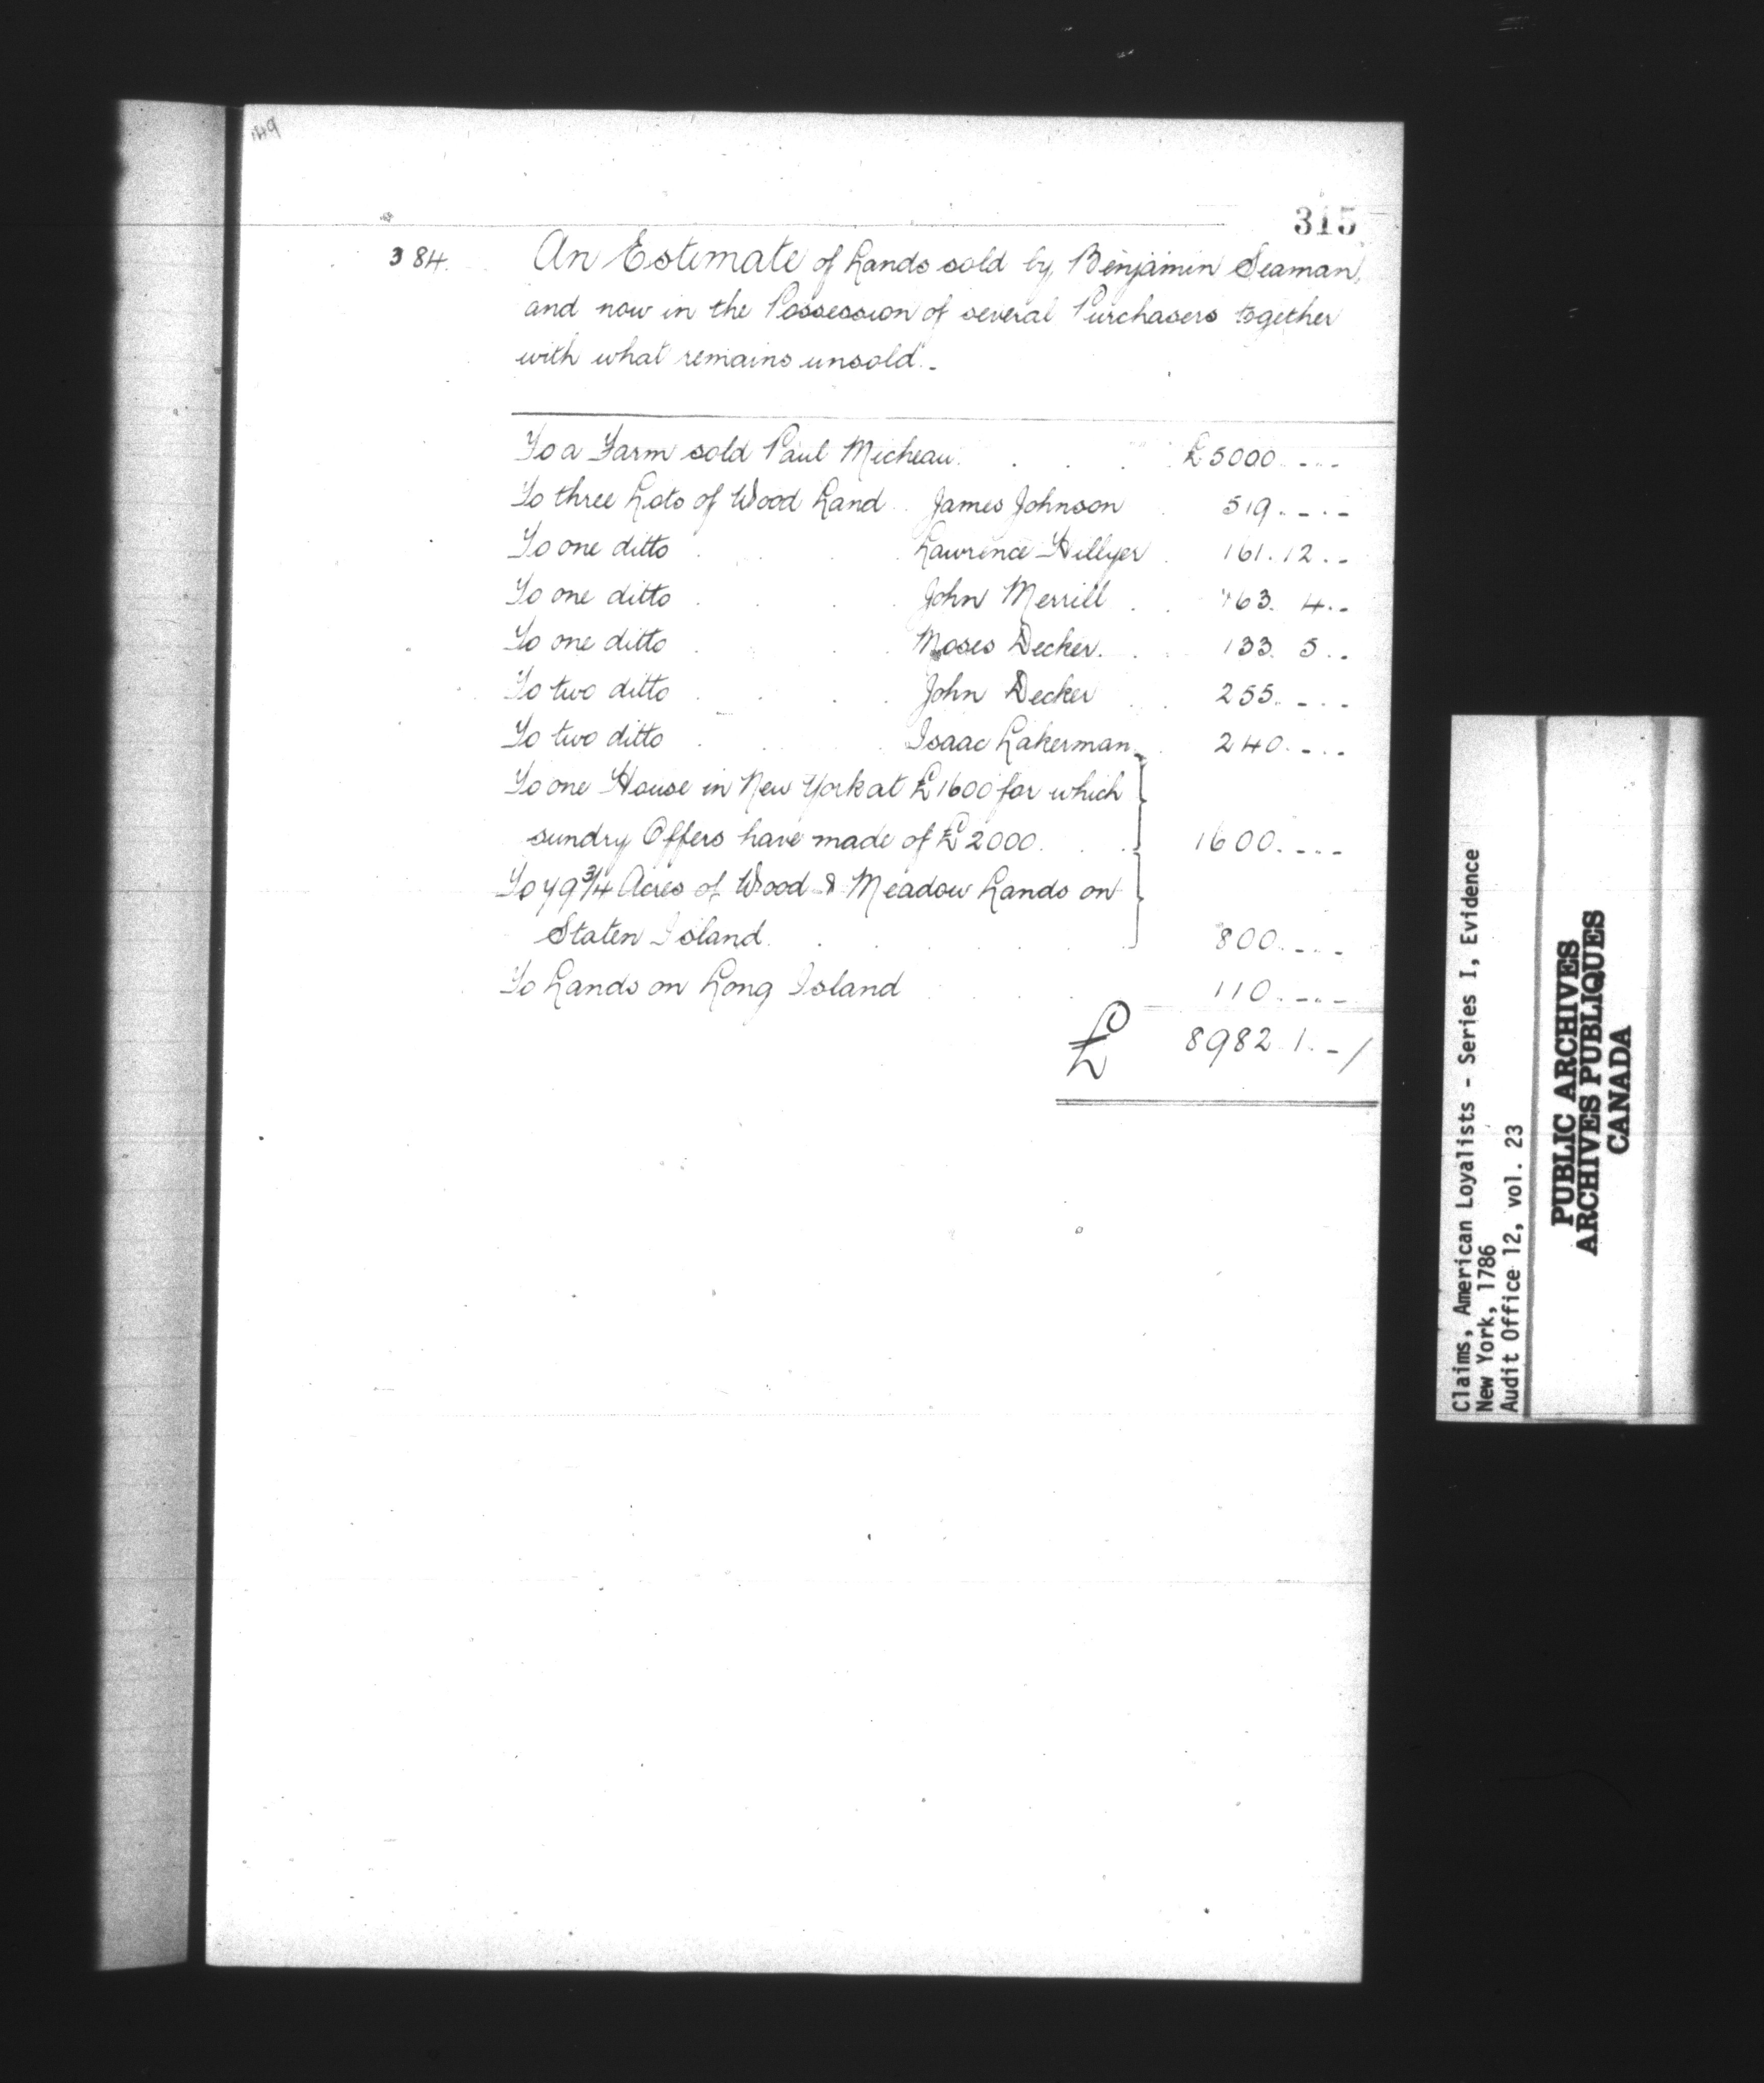 315
384. An Estimate of Lands sold by Benjamin Seaman,
and now in the Possession of several Purchasers together
with what remains unsold.-
To a Farm sold Paul Micheau . . . £5000.---
To three Lots of Wood Land . James Johnson . 519.---
To one ditto . . . Lawrence Hillyer . 161.12.-
To one ditto . . . John Merrill . . 163. 4.-
To one ditto . . . Moses Decker. . . 133. 5..
To two ditto . . . John Decker . . 255.---
To two ditto . . . Isaac Lakerman . 240.---
To one House in New York at £1600 for which
sundry Offers have made of £2000. . . 1600.---
To 79 3/4 Acres of Wood & Meadow Lands on
Staten Island. . . . . . 800.---
To Lands on Long Island . . . 110.---
£ 8982.1.-/
Claims, American Loyalists - Series I, Evidence
New York, 1786
Audit Office 12, vol. 23
PUBLIC ARCHIVES
ARCHIVES PUBLIQUES
CANADA